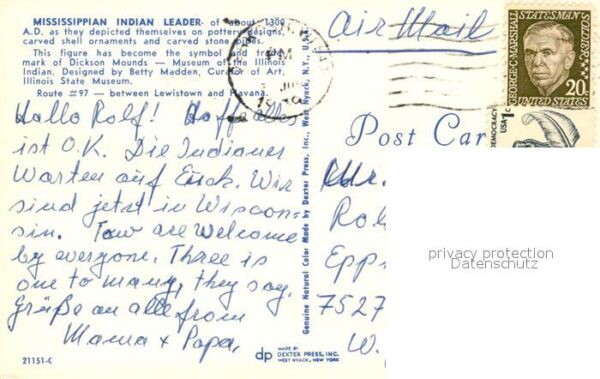 MISSISSIPPIAN INDIAN LEADER - of about 1300
A.D. as they depicted themselves on pottery designs,
carved shell ornaments and carved stone pipes.
This figure has become the symbol and trade
mark of Dickson Mounds — Museum of the Illinois
Indian. Designed by Betty Madden, Curator of Art,
Illinois State Museum.
Route #97 — between Lewistown and Havana.
Hallo Rolf! Hoffe alles
ist O.K. Die Indianer
Warten auf Euch. Wir
sind jetzt in Wiscon-
sin. You are welcome
by everyone. Three is
one to many, they say.
Grüße an alle from
Mama + Papa.
21151-C
dp
MADE BY
DEXTER PRESS, INC.
WEST NYACK, NEW YORK
Genuine Natural Color Made by Dexter Press, Inc., West Nyack, N.Y., U.S.A.
Air Mail
PM
GEORGE C. MARSHALL
STATESMAN
SOLDIER
20c
UNITED STATES
DEMOCRACY
USA 1c
Post Car
Rol
Epp
7527
W.
privacy protection
Datenschutz